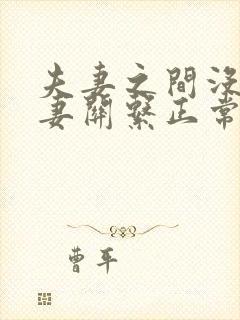 夫妻之間沒
妻關繫正常
曹平